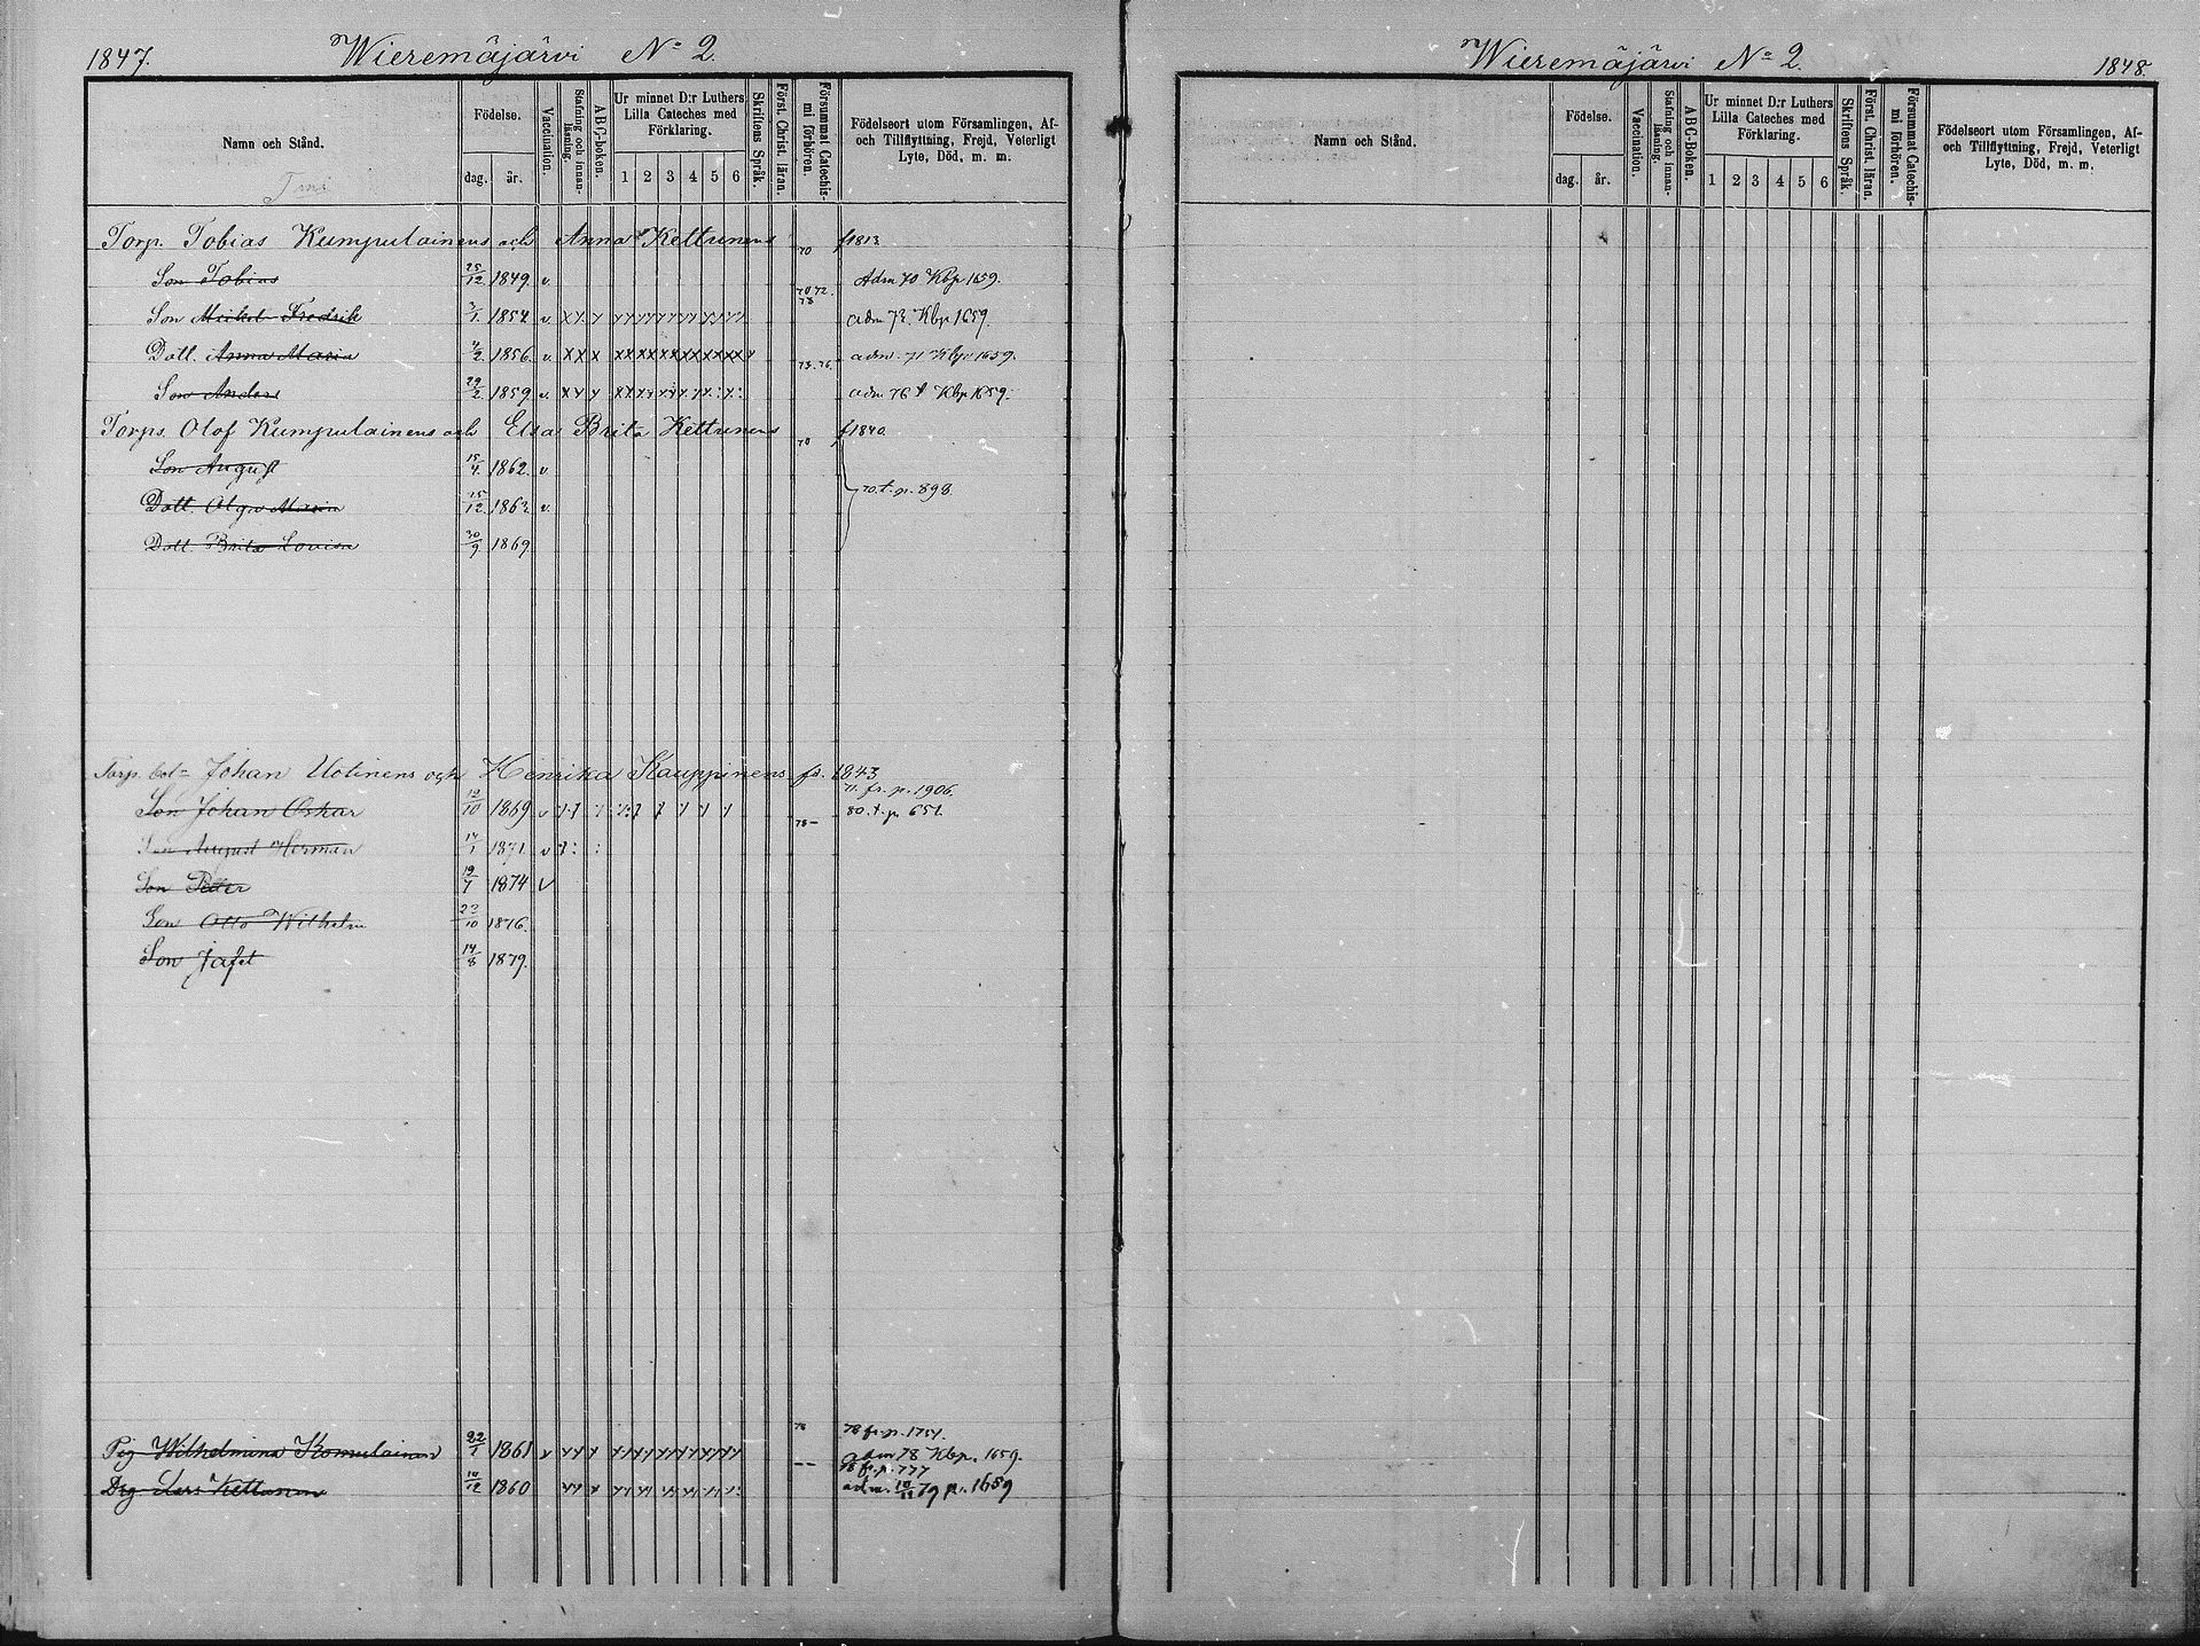 1847. Wieremäjärvi No 2.
Namn och Stånd.
Födelse.
dag. år.
Vaccination.
Stafning och innan-läsning.
ABC-boken.
Ur minnet D:r Luthers
Lilla Cateches med
Förklaring.
1 2 3 4 5 6
Skriftens Språk.
Först. Christ. läran.
Försummat Catechis-
mi förhören.
Födelseort utom Församlingen, Af-
och Tillflyttning, Frejd, Veterligt
Lyte, Död, m. m.
Torp. Tobias Kumpulainens och Anna Kettunens 70 f1813
Son Tobias 25/12 1849. v. Adm 70 Kbp 1659.
70 72.
73
Son Mickel Fredrik 3/1 1854 v. adm 72. Kbp 1659.
Dott. Anna Maria 4/2 1856. v. xx x xx xx xx xx xx xx adm. 71 Kbp 1659.
73. 76.
Son Anders 29/2 1859 v. adm 76 Kbp 1659.
Torps. Olof Kumpulainens och Elsa Brita Kettunens 70 f1840.
Son August 15/4. 1862. v.
Dott. Olga Maria 25/12. 1863. v. 70. t. p. 898.
Dott. Brita Lovisa 30/9 1869
Torp. bol= Johan Uotinens och Henrika Kauppinens fd. 1843
71. fr. p. 1906.
Son Johan Oskar 12/10 1869 v 78— 80. t. p. 651.
Son August Herman 14/1 1871. v
Son Petter 19/7 1874 v
Son Otto Wilhelm 22/10 1876.
Son Jafet 14/8 1879.
78 78 fr. p. 1754.
Pig Wilhelmina Komulainen 22/1 1861 v adm 78 Kbp. 1659.
-- 78 fr. p. 777
Drg. Lars Kettunen 10/12 1860 adm. 10/11 79 p. 1659
Wieremäjärvi No 2. 1848.
Namn och Stånd.
Födelse.
dag. år.
Vaccination.
Stafning och innan-läsning.
ABC-Boken.
Ur minnet D:r Luthers
Lilla Cateches med
Förklaring.
1 2 3 4 5 6
Skriftens Språk.
Först. Christ. läran.
Försummat Catechis-
mi förhören.
Födelseort utom Församlingen, Af-
och Tillflyttning, Frejd, Veterligt
Lyte, Död, m. m.